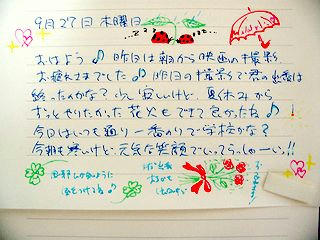 9月27日 木曜日
おはよう♪昨日は朝から映画の撮影
お疲れさまでした♪昨日の撮影で君の出番は
終ったのかな？少し寂しいけど、夏休みから
ずっとやりたかった花火もできて良かったね♪！
今日はいつも通り一番のりで学校かな？
今朝も寒いけど、元気な笑顔でいってらっしゃーい!!